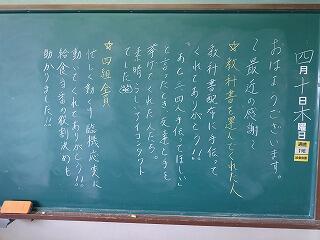 四月十日木曜日
おはようございます。
～最近の感謝～
☆教科書を運んでくれた人
教科書配布に手伝って
くれてありがとう!!
"あと二、四人手伝ってほしい"
と言ったとき、反妻と手を
挙げてくれた人たち。
素晴らしいアイコンタクト
でした
☆四組全員
忙しく動く中、臨機応変に
動いてくれてありがとう!!
給食当番の役割決めも
助かりました!!